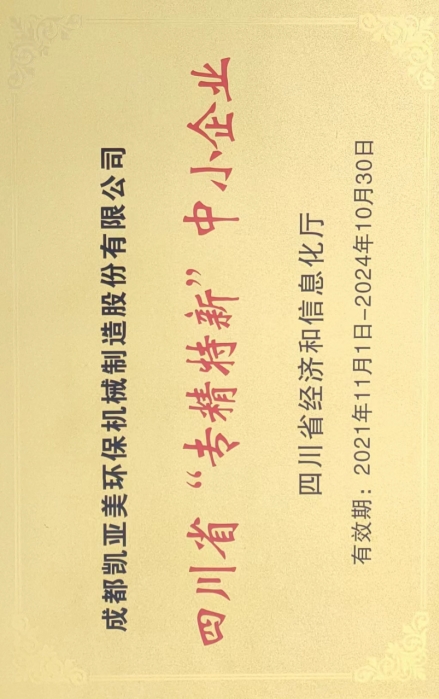 成都凯亚美环保机械制造股份有限公司
四川省“专精特新”中小企业
四川省经济和信息化厅
有效期：2021年11月1日-2024年10月30日